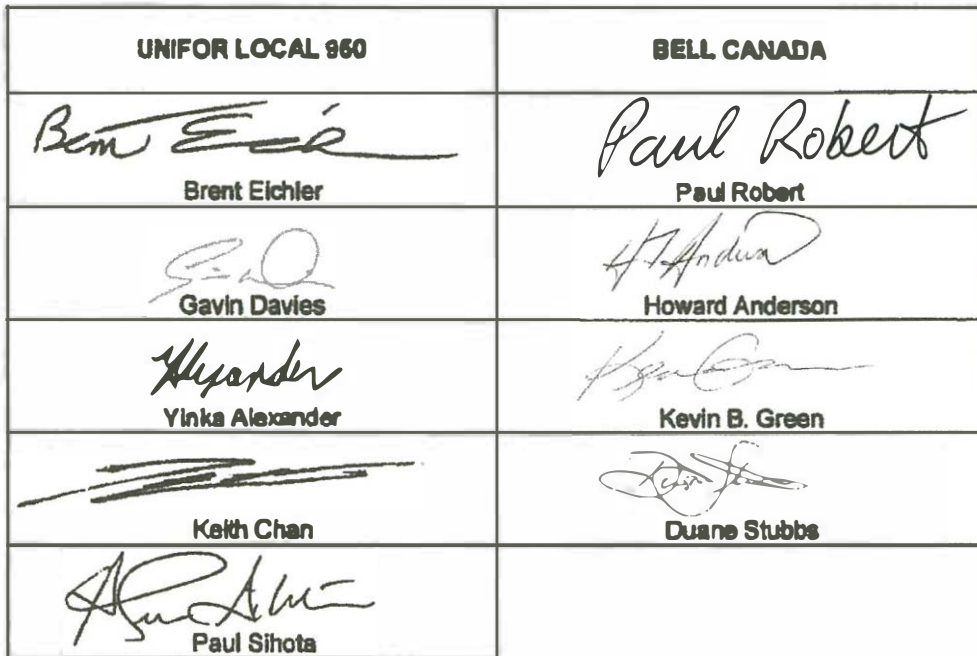 UNIFOR LOCAL 950
BELL CANADA
Brent Eichler
Paul Robert
Paul Robert
Gavin Davies
Howard Anderson
Alexander
Yinka Alexander
Kevin B. Green
Keith Chan
Duane Stubbs
Paul Sihota